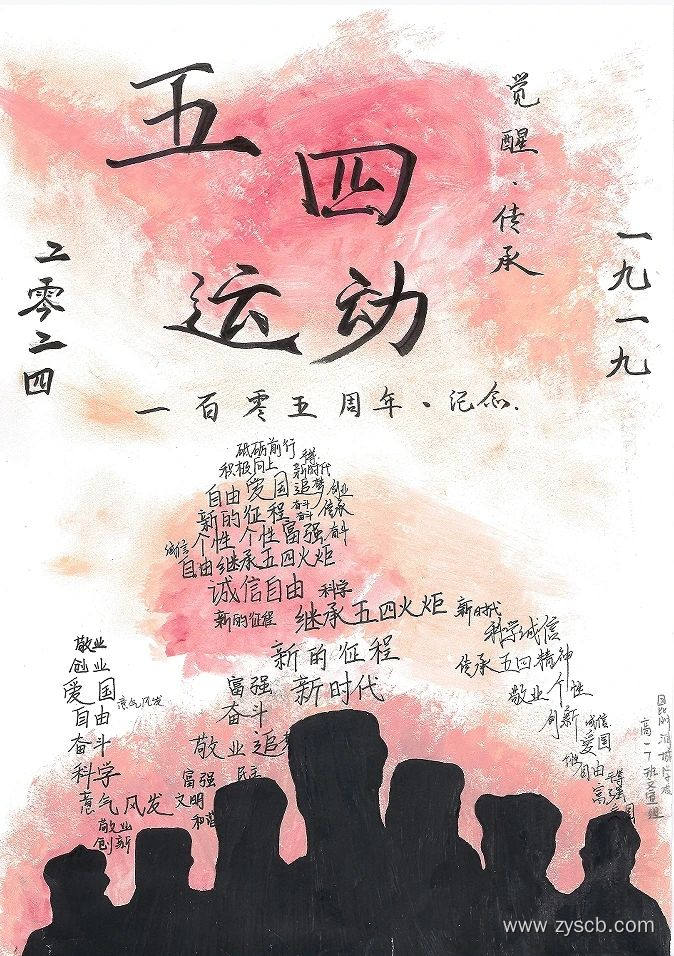 五四
运动
觉醒·传承
一九一九
二零二四
一百零五周年·纪念.
砥砺前行
积极向上
新时代
自由 爱国 追梦 创业
新的征程 奋斗 传承
诚信 个性 个性 富强 奋斗
自由 继承五四火炬
诚信自由 科学
新的征程 继承五四火炬 新时代
新的征程
新时代
富强
奋斗
敬业 追梦
富强
民主
文明
和谐
敬业
创业
爱国
自由
意气风发
奋斗
科学
意气风发
敬业
创新
科学诚信
传承五四精神
敬业 个性
创新
诚信
爱国
自由
富强
爱国
www.zyscb.com